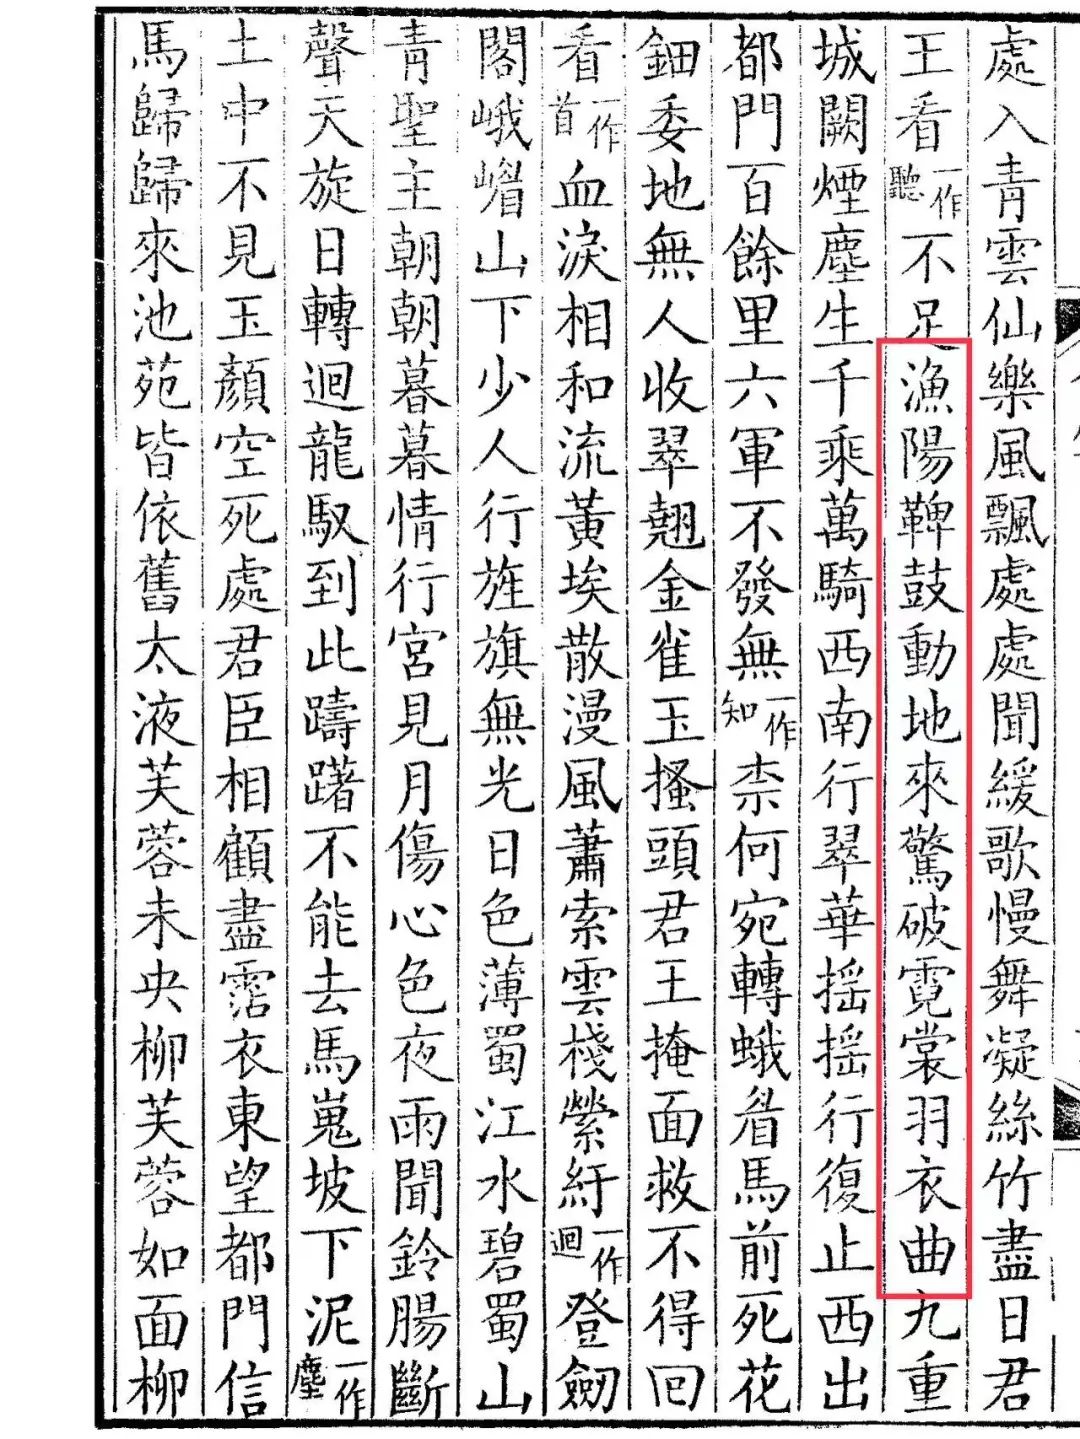 處入青雲仙樂風飄處處聞緩歌慢舞凝絲竹盡日君
王看一作聽不足漁陽鞞鼓動地來驚破霓裳羽衣曲九重
城闕煙塵生千乘萬騎西南行翠華搖搖行復止西出
都門百餘里六軍不發無一作知柰何宛轉蛾眉馬前死花
鈿委地無人收翠翹金雀玉搔頭君王掩面救不得回
看一作首血淚相和流黃埃散漫風蕭索雲棧縈紆一作迴登劒
閣峨嵋山下少人行旌旗無光日色薄蜀江水碧蜀山
青聖主朝朝暮暮情行宮見月傷心色夜雨聞鈴腸斷
聲天旋日轉迴龍馭到此躊躇不能去馬嵬坡下泥一作塵
土中不見玉顏空死處君臣相顧盡霑衣東望都門信
馬歸歸來池苑皆依舊太液芙蓉未央柳芙蓉如面柳